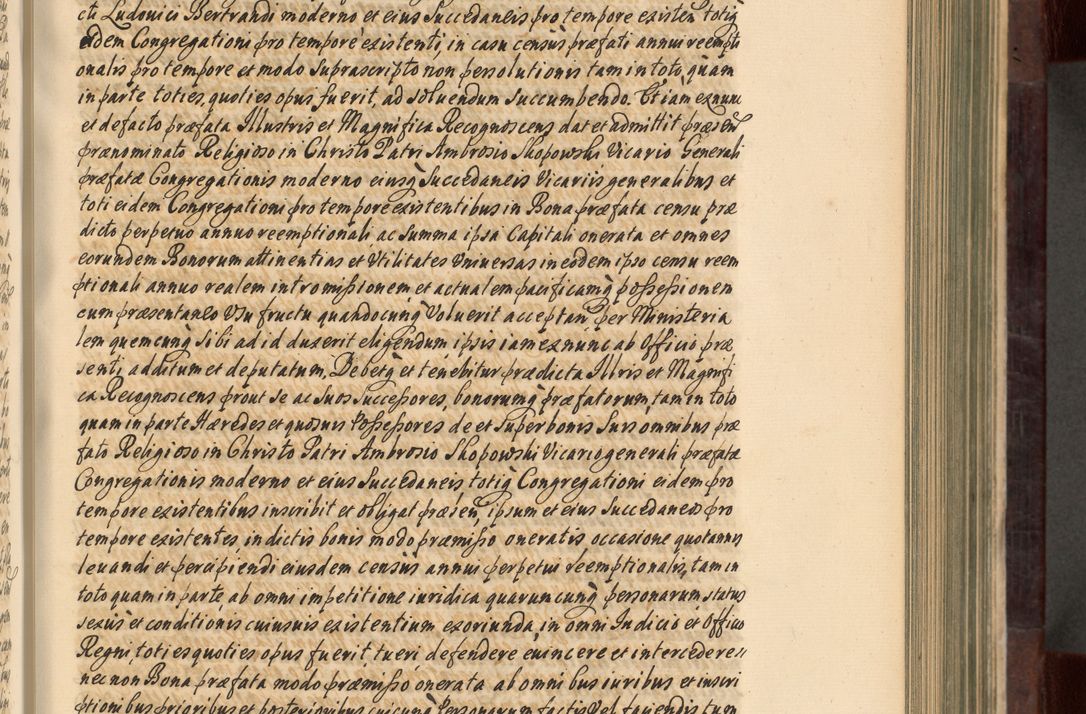 cti Ludovici Bertrandi moderno et eius Succedaneis pro tempore existen totiq
eidem Congregationi pro tempore existenti, in casu census præfati annui reempti
onalis pro tempore et modo suprascripto non persolutionis tam in toto, quam
in parte toties, quoties opus fuerit, ad soluendum succumbendo. Et iam exnunc
et defacto præfata Illustris et Magnifica Recognoscens dat et admittit præsen
prænominato Religioso in Christo Patri Ambrosio Skopowski Vicario Generali
præfatæ Congregationis moderno eiusq Succedaneis Vicariis generalibus et
toti eidem Congregationi pro tempore existentibus in Bona præfata censu præ
dicto perpetuo annuo reemptionali ac summa ipsa Capitali onerata et omnes
eorundem Bonorum attinentias et Utilitates Universas in eodem ipso censu reem
ptionali annuo realem intromissionem et actualem pacificamq possessionem
cum præsentaneo Usufructu quandocunq Voluerit acceptan per Ministeria
lem quemcunq sibi ad id duxerit eligendum, ipsis iam exnunc ab Officio præ
senti additum et deputatum, Debetq et tenebitur prædicta Illris et Magnifi
ca Recognoscens prout se ac suos successores, bonorumq præfatorum, tam in toto
quam in parte Hæredes et quosuis Possessores de et super bonis suis omnibus præ
fato Religioso in Christo Patri Ambrosio Skopowski Vicario generali præfatæ
Congregationis moderno et eius Succedaneis, totiq Congregationi eidem pro
tempore existentibus inscribit et obligat præsen, ipsum et eius Succedaneos pro
tempore existentes, in dictis bonis modo præmisso oneratis occasione quotannis
leuandi et percipiendi eiusdem census annui perpetui reemptionalis, tam in
toto quam in parte, ab omni impetitione iuridica quaruncunq personarum status
sexus et conditionis cuiusuis existentium exoriunda, in omni Iudicio et Officio
Regni, toties quoties opus fuerit tueri defendere euincere et intercedere
nec non Bona præfata modo præmisso onerata ab omnibus iuribus et inscri
ptionibus prioribus et posterioribus cuicunq Personarum factis Vel faciendis tum